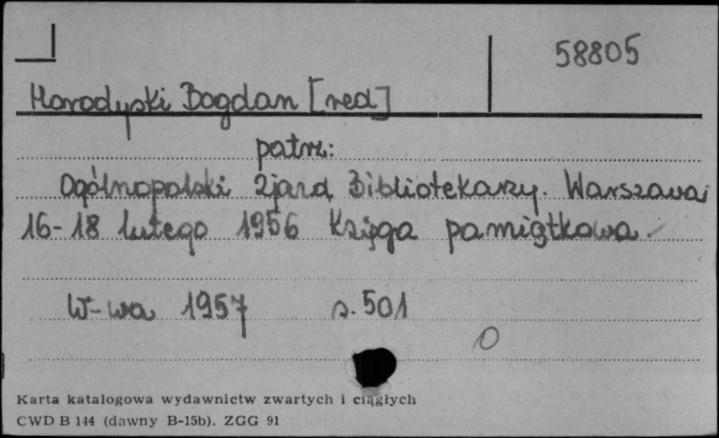 58805
Horodyski Bogdan [red]
patrz:
Ogólnopolski Zjazd Bibliotekarzy. Warszawa
16-18 lutego 1956 Księga pamiątkowa
W-wa 1957 s. 501
0
Karta katalogowa wydawnictw zwartych i ciągłych
CWD B 144 (dawny B-15b). ZGG 91